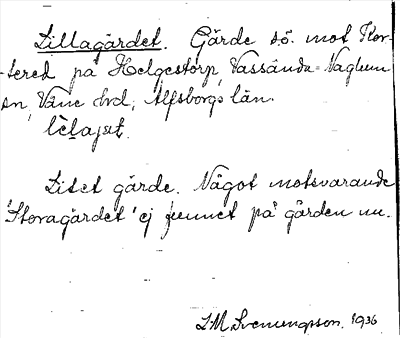 Lillagärdet. Gärde s.ö. mot Stor-
-tered på Helgestorp, Vassända-Naglum
sn, Väne hrd, Älfsborgs län.
Litet gärde. Något motsvarande
"Storagärdet" ej funnet på gården nu.
L.M. Svenungsson. 1936